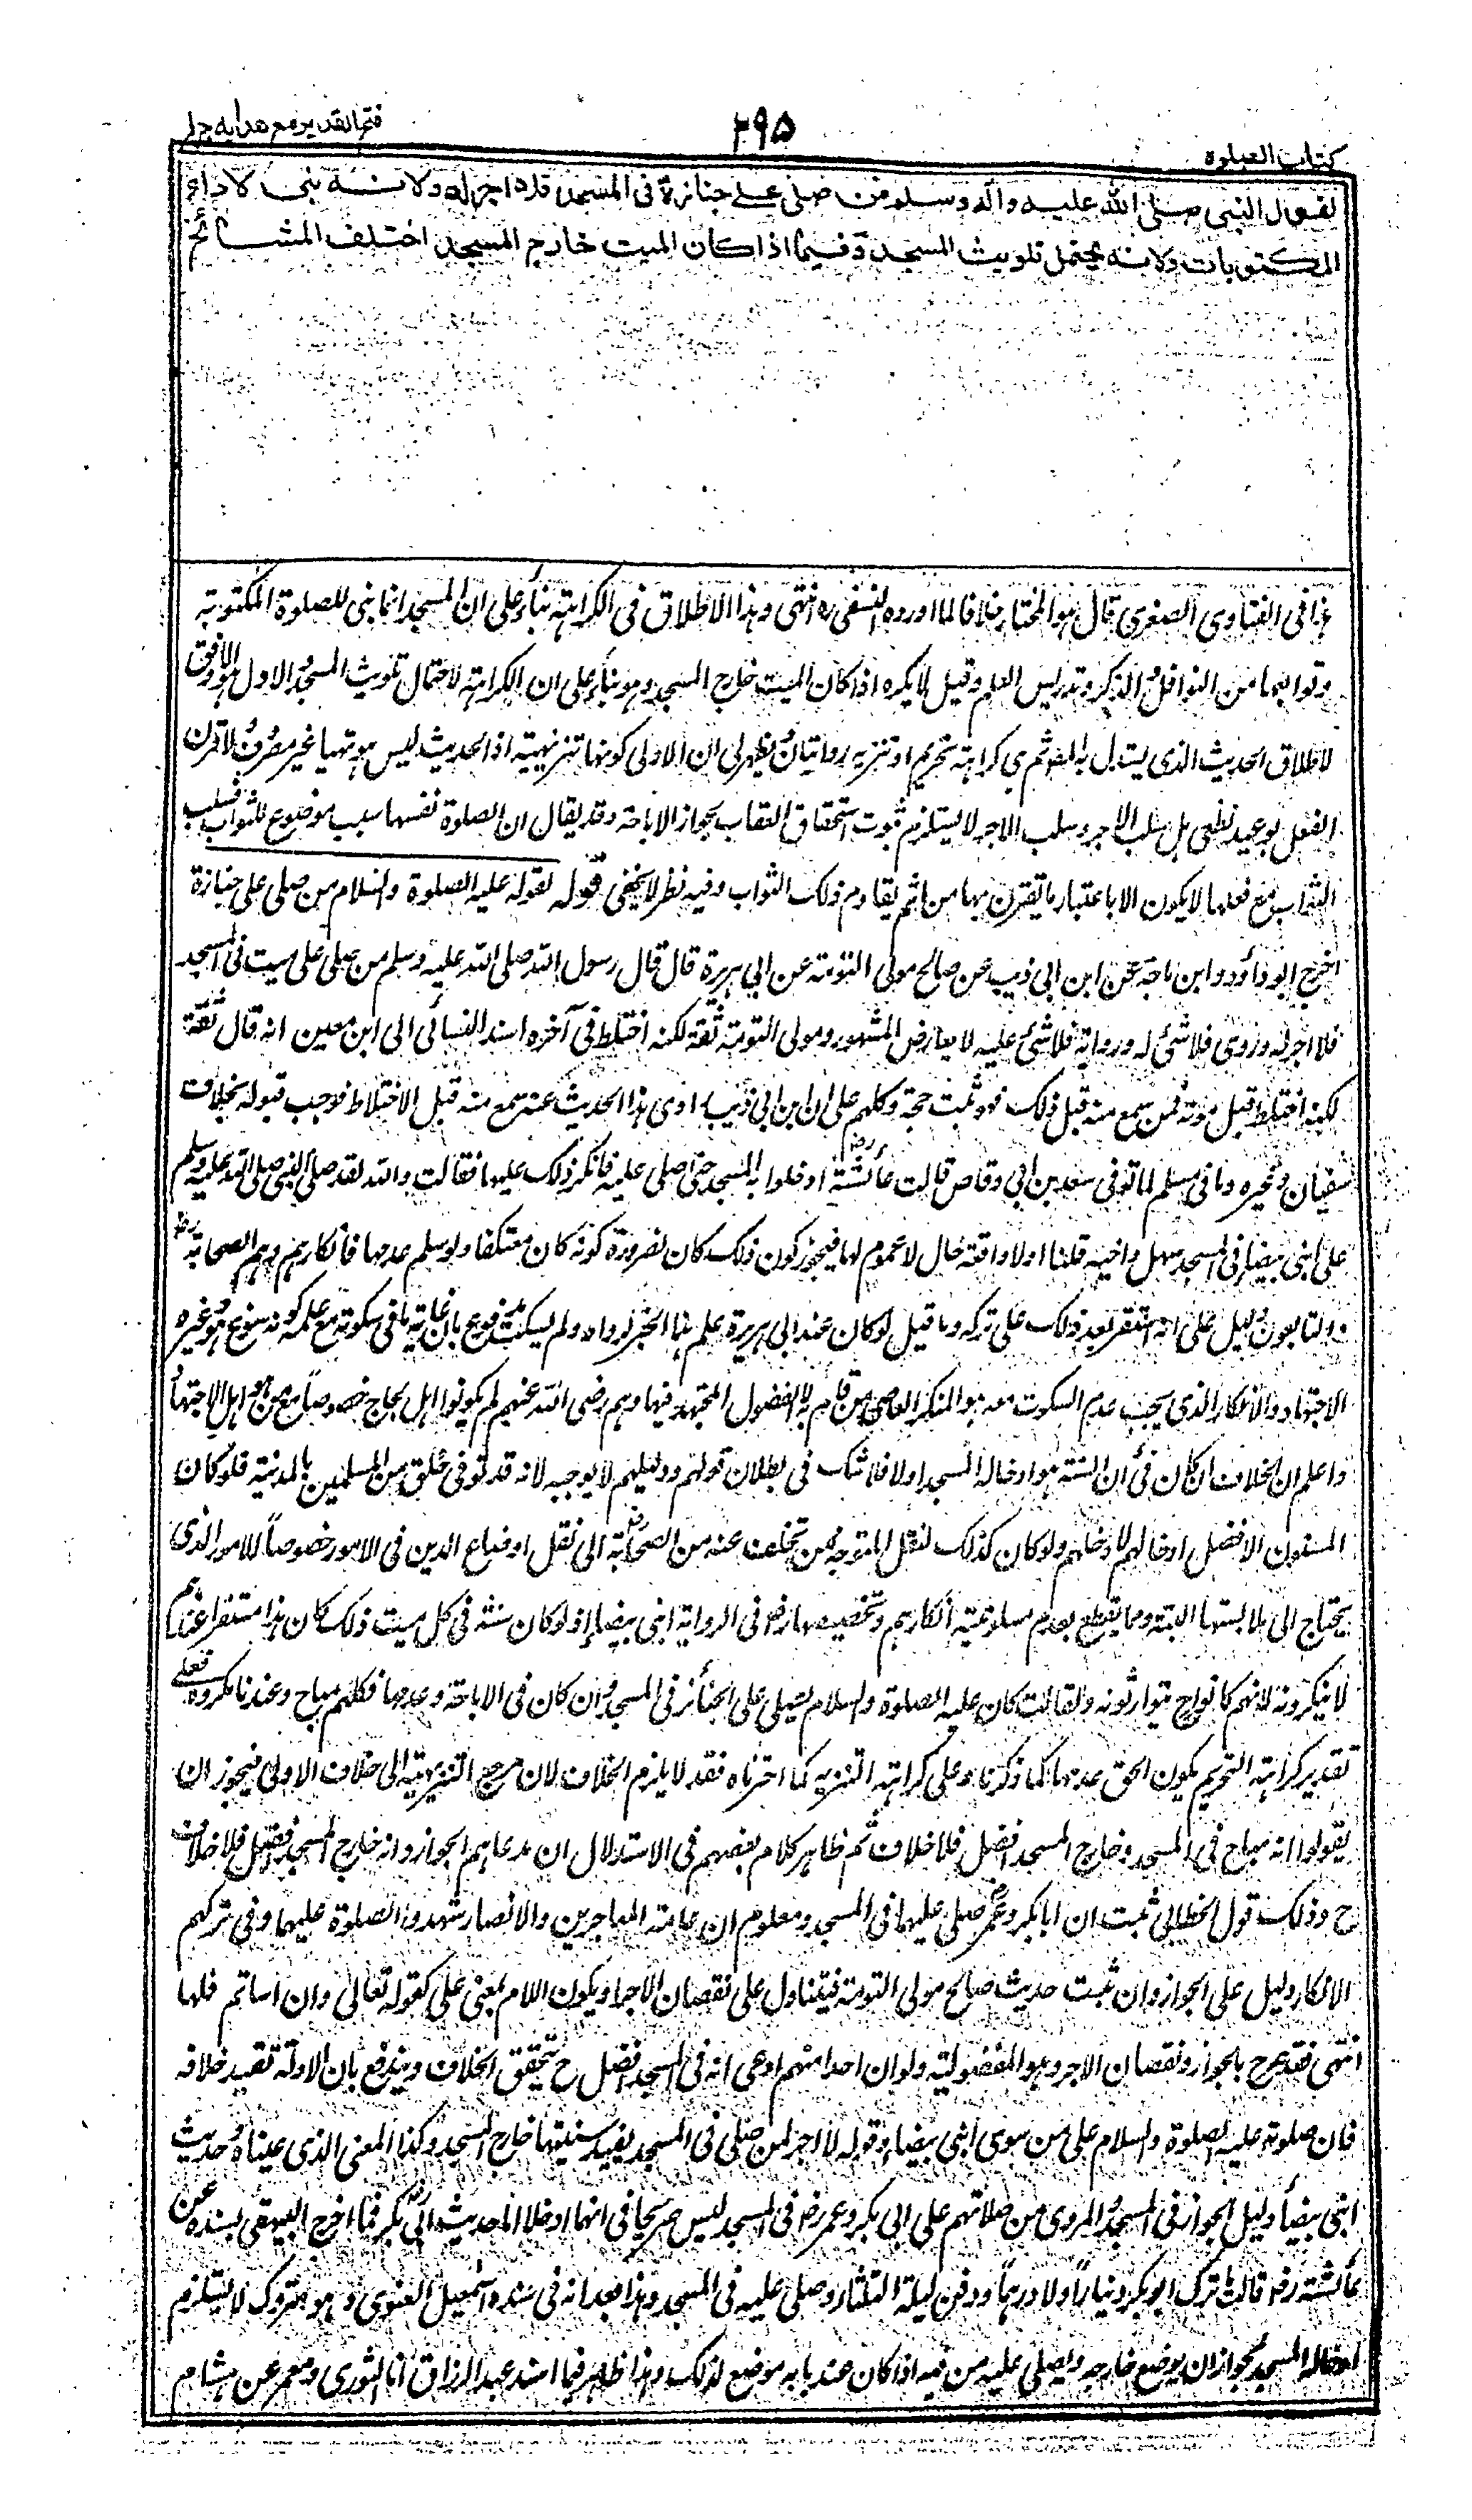 كتاب الصلوة
٢٩٥
فتح القدير مع هدايه ج
لقول النبي صلى الله عليه واله وسلم من صلى على جنازة في المسجد فلا اجر له ولانه بنى لاداء
المكتوبات ولانه يحتمل تلويث المسجد وفيما اذا كان الميت خارج المسجد اختلف المشائخ
هذا في الفتاوى الصغرى قال هو المختار خلافا لما اورده النسفى ره انتهى وهذا الاطلاق في الكراهة بناء على ان المسجد انما بنى للصلوة المكتوبة
وتوابعها من النوافل والذكر وتدريس العلم وقيل لا يكره اذا كان الميت خارج المسجد وهو بناء على ان الكراهة لاحتمال تلويث المسجد والاول هو الاوفق
لاطلاق الحديث الذى يستدل به المص ثم هى كراهة تحريم او تنزيه روايتان ويظهر لى ان الاولى كونها تنزيهية اذ الحديث ليس هو نهيا غير مصروف ولا قرن
الفعل بوعيد ظنى بل سلب الاجر وسلب الاجر لا يستلزم ثبوت استحقاق العقاب لجواز الاباحة وقد يقال ان الصلوة نفسها سبب موضوع للثواب فسلب
الثواب مع فعلها لا يكون الا باعتبار ما يقترن بها من اثم يقاوم ذلك الثواب وفيه نظر لا يخفى قوله لقوله عليه الصلوة والسلام من صلى على جنازة
اخرج ابو داؤد وابن ماجة عن ابن ابى ذيب عن صالح مولى التؤمة عن ابى هريرة قال قال رسول الله صلى الله عليه وسلم من صلى على ميت في المسجد
فلا اجر له وروى فلا شئ له ورواية فلا شئ عليه لا يعارض المشهور ومولى التومة ثقة لكنه اختلط في آخره اسند النسائى الى ابن معين انه قال ثقة
لكنه اختلط قبل موته فمن سمع منه قبل ذلك فهو ثبت حجة وكلهم على ان ابن ابى ذئب راوى هذا الحديث عنه سمع منه قبل الاختلاط فوجب قبوله بخلاف
سفيان وغيره وما في مسلم لما توفى سعد بن ابى وقاص قالت عائشة رض ادخلوا به المسجد حتى اصلى عليه فانكر ذلك عليها فقالت والله لقد صلى النبى صلى الله عليه وسلم
على ابنى بيضاء في المسجد سهل واخيه قلنا اولا واقعة حال لا عموم لها فيجوز كون ذلك كان لضرورة كونه كان معتكفا ولو سلم عدمها فانكارهم وهم الصحابة رض
والتابعون دليل على انه استقر بعد ذلك على تركه وما قيل لو كان عند ابى هريرة علم هذا الخبر لرواه ولم يسكت مدفوع بان غاية ما في سكوته مع علمه كونه سوغ هو وغيره
الاجتهاد والانكار الذى يجب عدم السكوت معه هو المنكر العاصى من قام به لا الفصول المجتهد فيها وهم رضى الله عنهم لم يكونوا اهل لجاج خصوصاً مع من هو اهل الاجتهاد
واعلم ان الخلاف ان كان في ان السنة هو ادخاله المسجد اولا فلا شك في بطلان قولهم ودليلهم لا يوجبه لانه قد توفى خلق من المسلمين بالمدينة فلو كان
المسنون الافضل ادخالهم لادخلهم ولو كان كذلك لنقل كتوجه من تخلف عنه من الصحابة رض الى نقل اوضاع الدين في الامور خصوصاً للامور الذى
يحتاج الى ملابستها البتة ومما يقطع بعدم مسنونيته انكارهم وتخصيصها رض في الرواية ابنى بيضاء اذ لو كان سنة في كل ميت ذلك كان هذا مستقرا عندهم
لا ينكرونه لانهم كانوا ح يتوارثونه ولقالت كان عليه الصلوة والسلام يصلى على الجنائز في المسجد وان كان في الاباحة وعدمها فكلهم مباح وعندنا مكروه فعلى
تقدير كراهة التحريم يكون الحق عدمها كما ذكرنا وعلى كراهة التنزيه كما اخترناه فقد لا يلزم الخلاف لان مرجع التنزيهية الى خلاف الاولى فيجوز ان
يقولوا انه مباح في المسجد وخارج المسجد افضل فلا خلاف ثم ظاهر كلام بعضهم في الاستدلال ان مدعاهم الجواز وانه خارج المسجد افضل فلا خلاف
ح وذلك قول الخطابى ثبت ان ابا بكر وعمر رض صلى عليهما في المسجد ومعلوم ان عامة المهاجرين والانصار شهدوا الصلوة عليهما وفى تركهم
الانكار دليل على الجواز وان ثبت حديث صالح مولى التومة فيتاول على نقصان الاجر او يكون اللام بمعنى على كقوله تعالى وان اساتم فلها
انتهى فقد صرح بالجواز ونقصان الاجر وهو المفضولية ولو ان احدا منهم ادعى انه في المسجد افضل ح يتحقق الخلاف ويندفع بان الادلة تفيد خلافه
فان صلوته عليه الصلوة والسلام على من سوى ابنى بيضاء وقوله لا اجر لمن صلى في المسجد يفيد سنيتها خارج المسجد وكذا المعنى الذى عيناه وحديث
ابنى بيضاء دليل الجواز في المسجد والمروى من صلاتهم على ابى بكر وعمر رض في المسجد ليس صريحا في انهما ادخلا اما حديث ابى بكر رض فما اخرج البيهقى بسنده عن
عائشة رض قالت ما ترك ابو بكر دينارا ولا درهما ودفن ليلة الثلثاء وصلى عليه في المسجد وهذا بعد انه في سنده اسمعيل الغنوى وهو متروك لا يستلزم
ادخاله المسجد لجواز ان يوضع خارجه ويصلى عليه من فيه اذا كان عند بابه موضع لذلك وهذا ظاهر فيما اسند عبد الرزاق انا الثورى ومعمر عن هشام